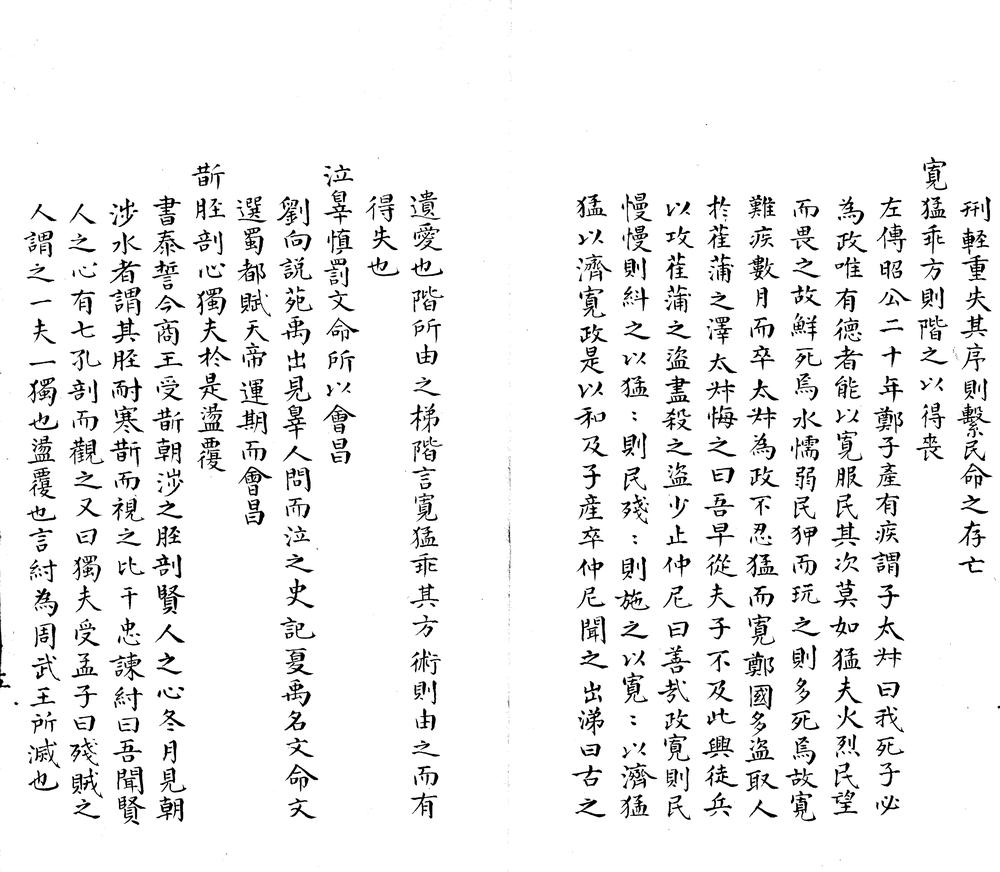 刑輕重失其序則繫民命之存亡
寬猛乖方則階之以得喪
左傳昭公二十年鄭子產有疾謂子太叔曰我死子必
為政唯有德者能以寬服民其次莫如猛夫火烈民望
而畏之故鮮死焉水懦弱民狎而玩之則多死焉故寬
難疾數月而卒太叔為政不忍猛而寬鄭國多盜取人
於萑蒲之澤太叔悔之曰吾早從夫子不及此興徒兵
以攻萑蒲之盜盡殺之盜少止仲尼曰善哉政寬則民
慢慢則糾之以猛〻則民殘〻則施之以寬〻以濟猛
猛以濟寬政是以和及子產卒仲尼聞之出涕曰古之
遺愛也階所由之梯階言寬猛乖其方術則由之而有
得失也
泣辠慎罰文命所以會昌
劉向說苑禹出見辠人問而泣之史記夏禹名文命文
選蜀都賦天帝運期而會昌
斮脛剖心獨夫於是盪覆
書泰誓今商王受斮朝涉之脛剖賢人之心冬月見朝
涉水者謂其脛耐寒斮而視之比干忠諫紂曰吾聞賢
人之心有七孔剖而觀之又曰獨夫受孟子曰殘賊之
人謂之一夫一獨也盪覆也言紂為周武王所滅也